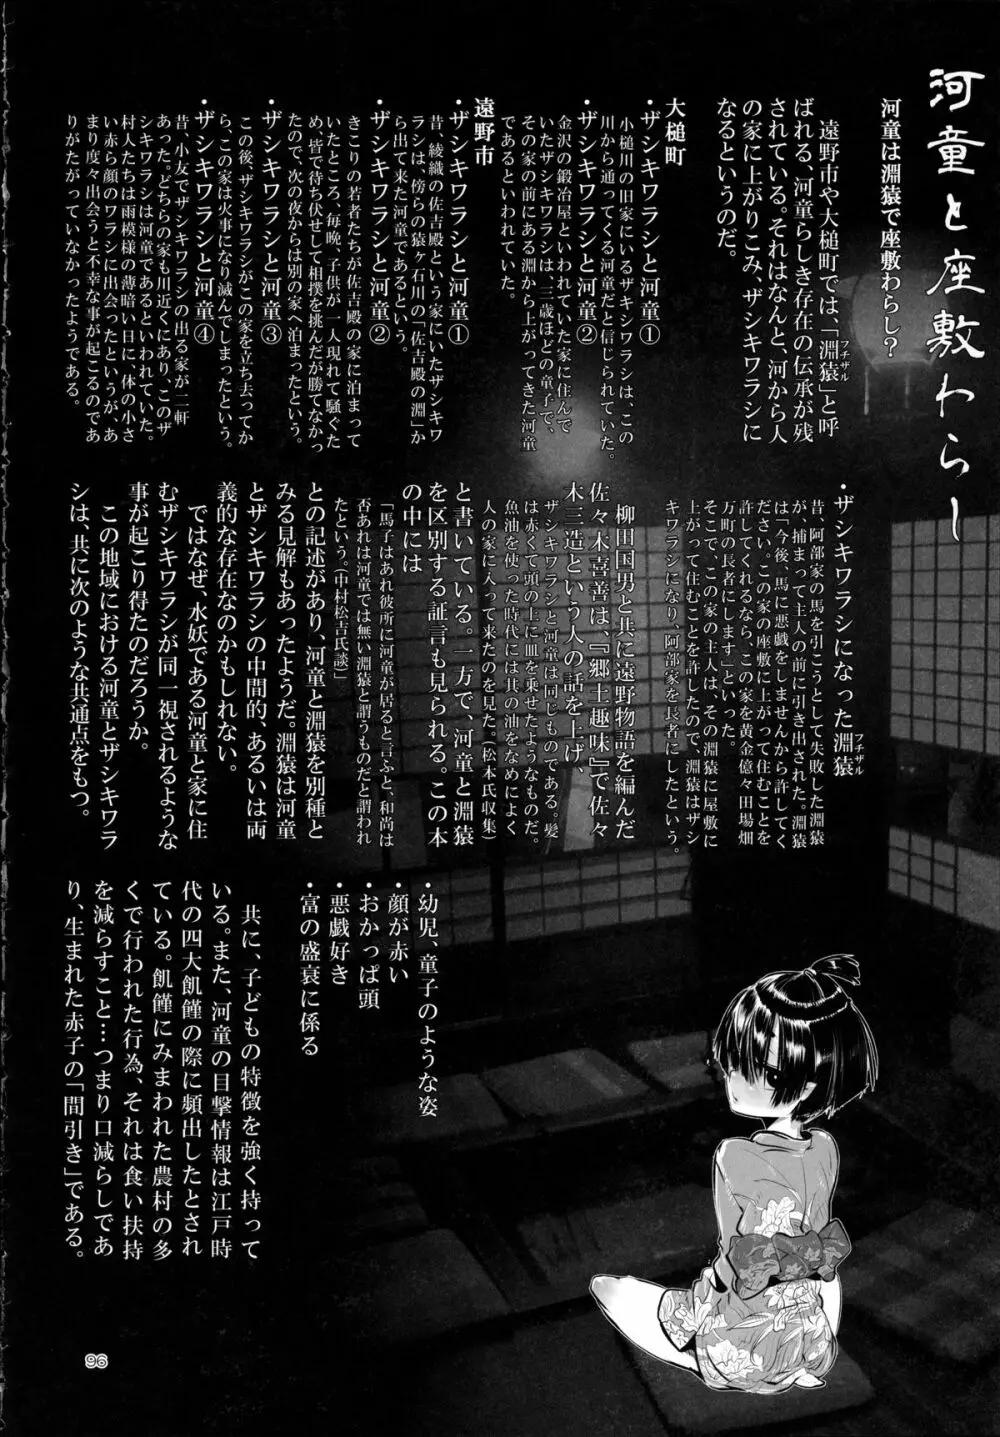 河童と座敷わらし
河童は淵猿で座敷わらし?
遠野市や大槌町では、「淵猿」と呼
フチザル
ばれる、河童らしき存在の伝承が残
されている。それはなんと、河から人
の家に上がりこみ、ザシキワラシに
なるというのだ。
大槌町
・ザシキワラシと河童①
小槌川の旧家にいるザキシワラシは、この
川から通ってくる河童だと信じられていた。
・ザシキワラシと河童②
金沢の鍛冶屋といわれていた家に住んで
いたザシキワラシは、一二歳ほどの童子で、
その家の前にある淵から上がってきた河童
であるといわれていた。
遠野市
・ザシキワラシと河童①
昔、綾織の佐吉殿という家にいたザシキワ
ラシは、傍らの猿ヶ石川の「佐吉殿の淵」か
ら出て来た河童であるという。
・ザシキワラシと河童②
きこりの若者たちが佐吉殿の家に泊まって
いたところ、毎晩、子供が一人現れて騒ぐた
め、皆で待ち伏せして相撲を挑んだが勝てなかっ
たので、次の夜からは別の家へ泊まったという。
・ザシキワラシと河童③
この後、ザシキワラシがこの家を立ち去ってか
ら、この家は火事になり滅んでしまったという。
・ザシキワラシと河童④
昔、小友でザシキワラシの出る家が二軒
あった。どちらの家も川近くにあり、このザ
シキワラシは河童であるといわれていた。
村人たちは雨模様の薄暗い日に、体の小さ
い赤ら顔のワラシに出会ったというが、あ
まり度々出会うと不幸な事が起こるのであ
りがたがっていなかったようである。
・ザシキワラシになった淵猿
フチザル
昔、阿部家の馬を引こうとして失敗した淵猿
が、捕まって主人の前に引き出された。淵猿
は「今後、馬に悪戯をしませんから許してく
ださい。この家の座敷に上がって住むことを
許してくれるなら、この家を黄金億々田場畑
万町の長者にします」といった。
そこで、この家の主人は、その淵猿に屋敷に
上がって住むことを許したので、淵猿はザシ
キワラシになり、阿部家を長者にしたという。
柳田国男と共に遠野物語を編んだ
佐々木喜善は、『郷土趣味』で佐々
木三造という人の話を上げ、
ザシキワラシと河童は同じものである。髪
は赤くて頭の上に皿を乗せたようなものだ。
魚油を使った時代には其の油をなめによく
人の家に入って来たのを見た。(松本氏収集)
と書いている。一方で、河童と淵猿
を区別する証言も見られる。この本
の中には
「馬子はあれ彼所に河童が居ると言ふと、和尚は
否あれは河童では無い淵猿と謂うものだと謂われ
たという。(中村松吉氏談)」
との記述があり、河童と淵猿を別種と
みる見解もあったようだ。淵猿は河童
とザシキワラシの中間的、あるいは両
義的な存在なのかもしれない。
ではなぜ、水妖である河童と家に住
むザシキワラシが同一視されるような
事が起こり得たのだろうか。
この地域における河童とザシキワラ
シは、共に次のような共通点をもつ。
・幼児、童子のような姿
・顔が赤い
・おかっぱ頭
・悪戯好き
・富の盛衰に係る
共に、子どもの特徴を強く持って
いる。また、河童の目撃情報は江戸時
代の四大飢饉の際に頻出したとされ
ている。飢饉にみまわれた農村の多
くで行われた行為、それは食い扶持
を減らすこと…つまり口減らしであ
り、生まれた赤子の「間引き」である。
96